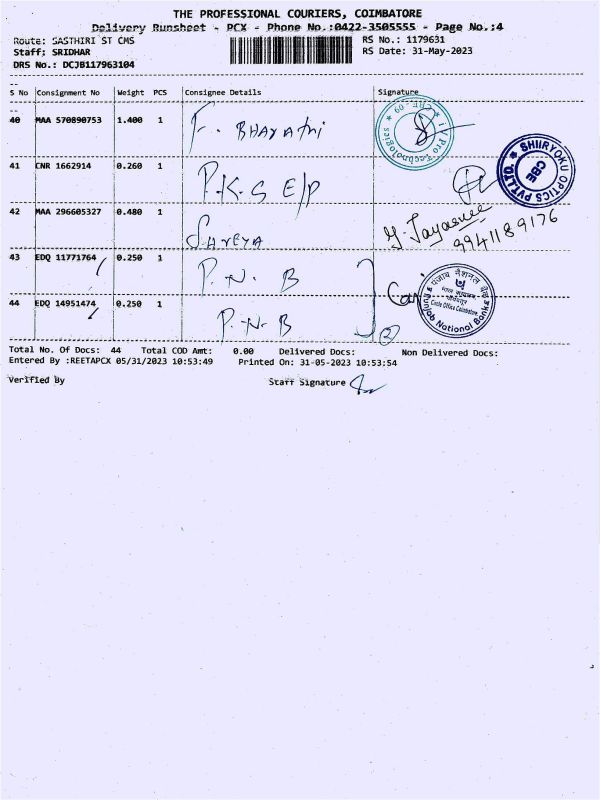 THE PROFESSIONAL COURIERS, COIMBATORE
Delivery Runsheet - PCX - Phone No.:0422-3505555 - Page No.:4
Route: SASTHIRI ST CMS RS No.: 1179631
Staff: SRIDHAR RS Date: 31-May-2023
DRS No.: DCJB117963104
S No Consignment No Weight PCS Consignee Details Signature
40 MAA 570890753 1.400 1 BHAYATHI
i Pro Technologies * CBE - 09 *
41 CNR 1662914 0.260 1 P.K.S E/P
* SHIIRYOKU OPTICS PVT LTD. CBE
42 MAA 296605327 0.480 1 SAREYA
9941189176
43 EDQ 11771764 0.250 1 P. N. B
पंजाब नैशनल बैंक
Circle Office Coimbatore
Punjab National Bank
44 EDQ 14951474 0.250 1 P. N. B
2
Total No. Of Docs: 44 Total COD Amt: 0.00 Delivered Docs: Non Delivered Docs:
Entered By :REETAPCX 05/31/2023 10:53:49 Printed On: 31-05-2023 10:53:54
Verified By Staff Signature